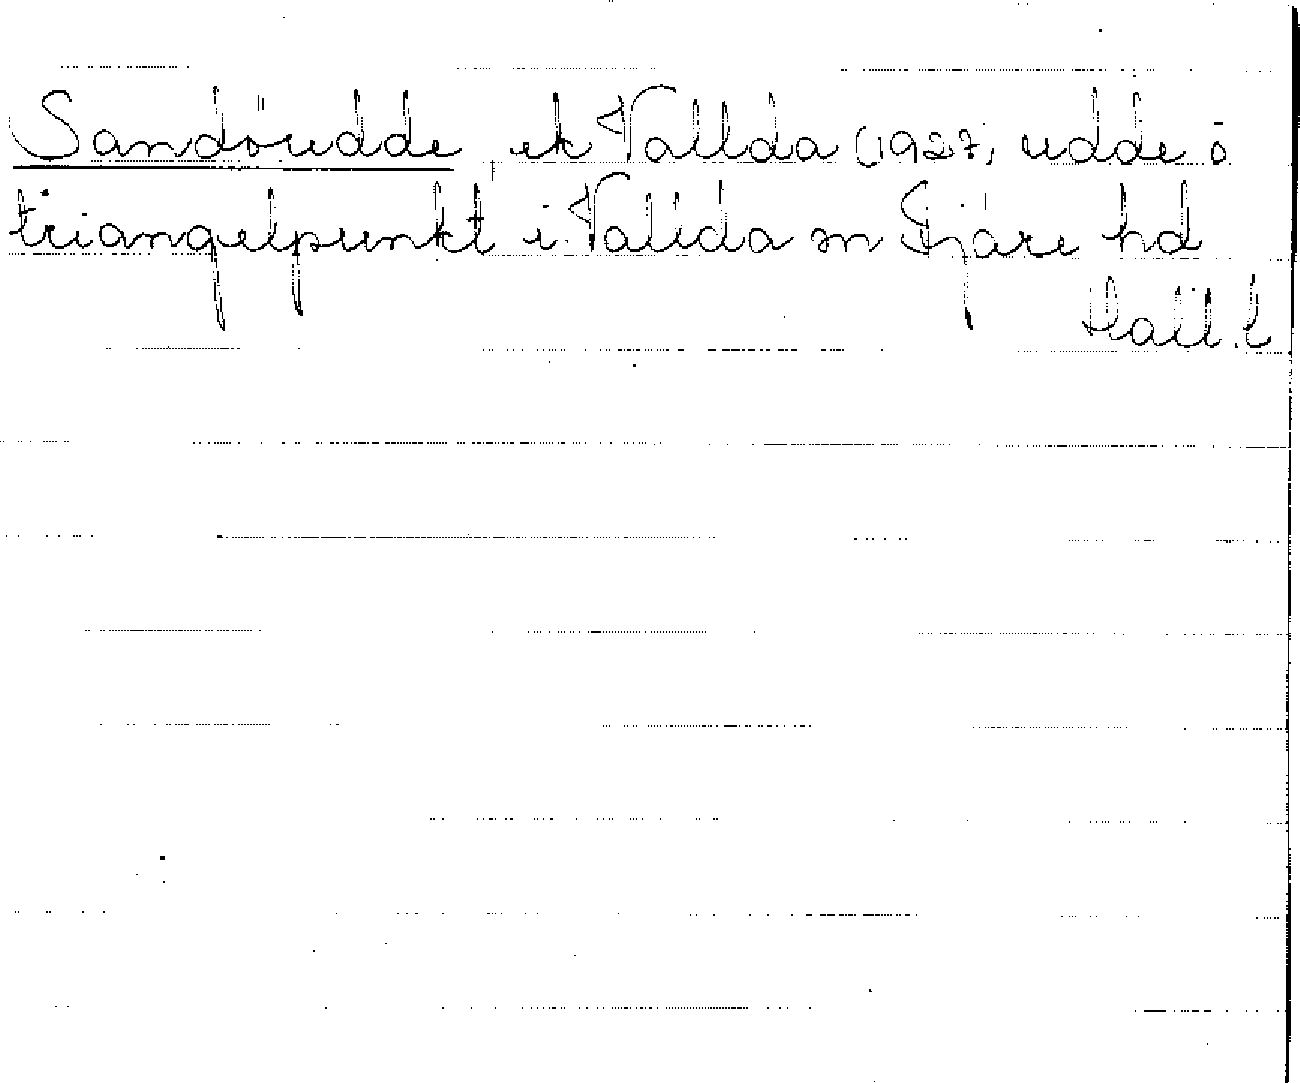 Sandöudde, ek Vallda (1927; udde o
triangelpunkt i Vallda sn Fjäre hd
Hall. l